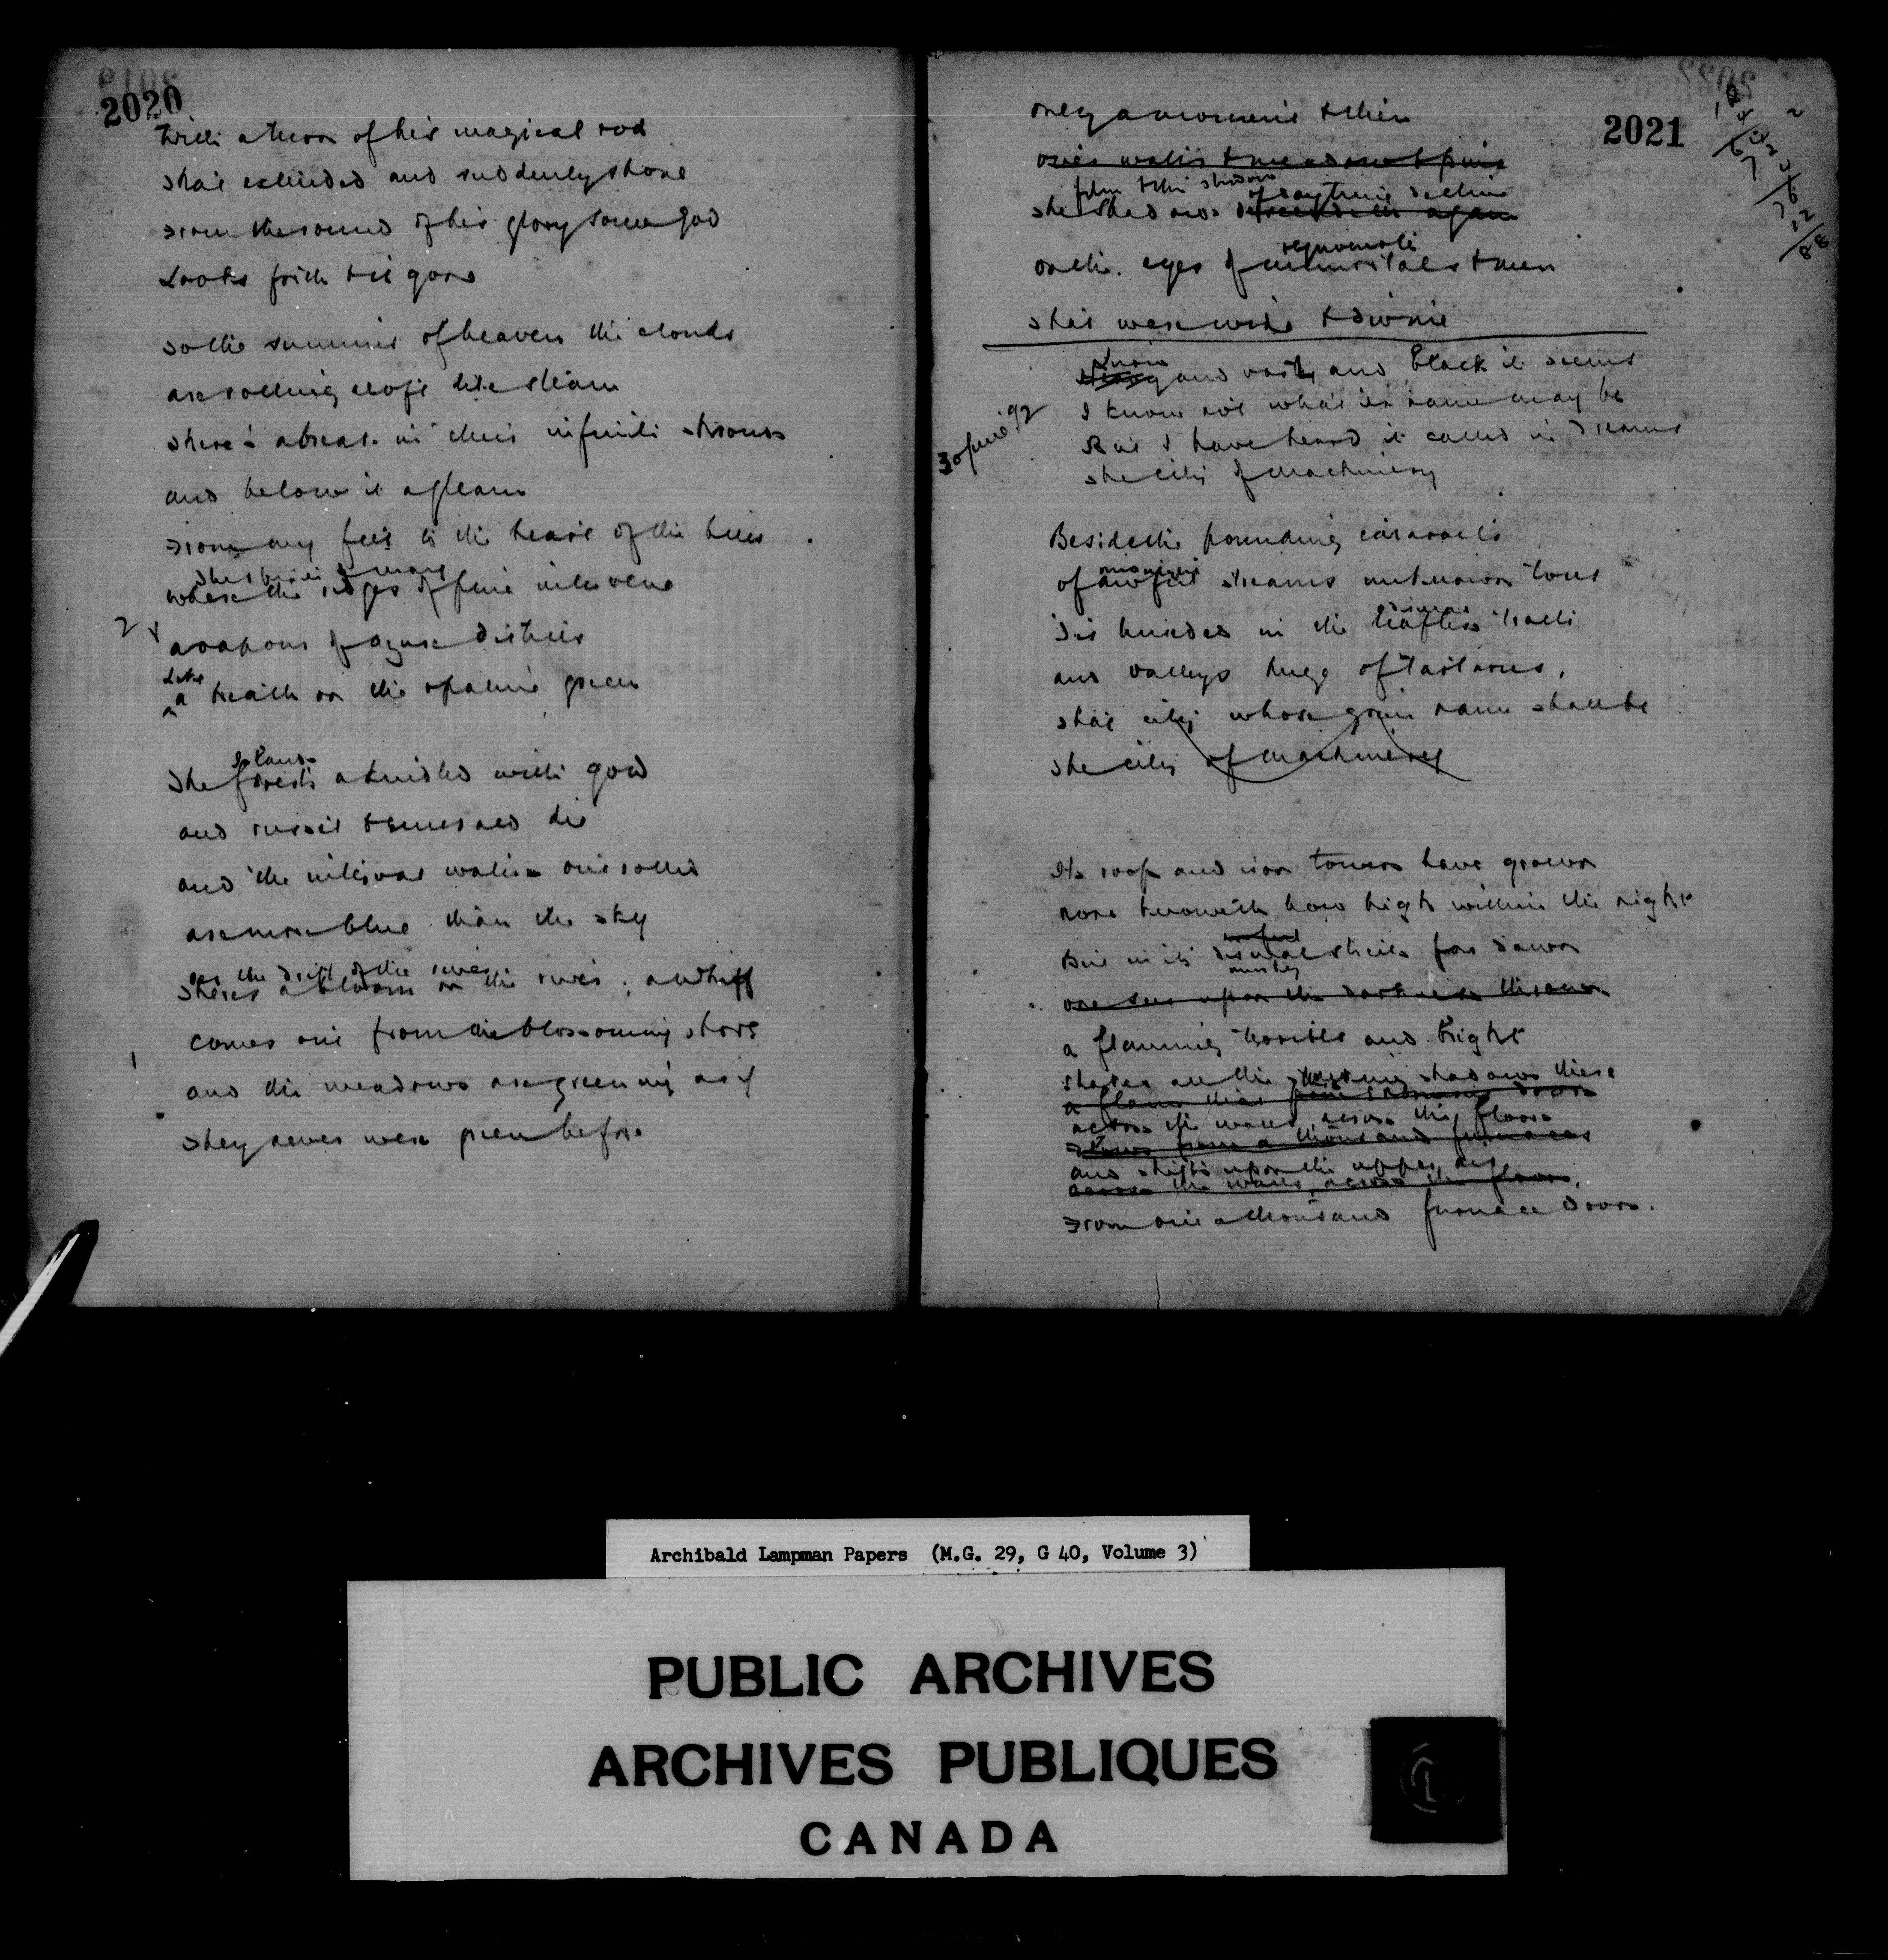 2020
With a turn of his magical rod
That extended and suddenly shone
From the round of his glory some god
Looks forth & is gone
To the summit of heaven the clouds
are rolling aloft like steam
There's a break in their infinite shrouds
and below it a gleam
From my feet to the heart of the hills
The spirits of many
where the ridges of pine intervene
2
a vapour of azure distills
Like
a breath on the opaline green
Islands
The forests a kindled with gold
and russet & emerald dye
and the interval waters outrolled
are more blue than the sky
on the drift of the river
There's a bloom on the river, a whiff
comes out from the blossoming shore
1
and the meadows are greening as if
They never were green before
2021
only a moment & then
over water & meadow & pine
from & the shadow
of daytime decline
The shadows descendeth again
on the eyes of immortals & men
That were wide & divine
Lurid
and vast, and black it seems
I know not what its name may be
But I have heard it called in dreams
The city of machinery
30 June 92
Beside the pounding cataracts
of awful streams unknown to us
Tis builded in the leafless tracts
and valleys huge of Tartarus,
That city whose grim name shall be
The city of machinery
Its roofs and iron towers have grown
None knoweth how high within the night
But in its dismal streets far down
murky
one sees upon the darkness thrown
a flaming terrible and bright
shakes all the stalking shadows there
a flame that from
across the walls, across the floors
from a thousand furnaces
and shifts upon the upper air
across the walls, across the floors,
From out a thousand furnace doors.
Archibald Lampman Papers (M.G. 29, G 40, Volume 3)
PUBLIC ARCHIVES
ARCHIVES PUBLIQUES
CANADA